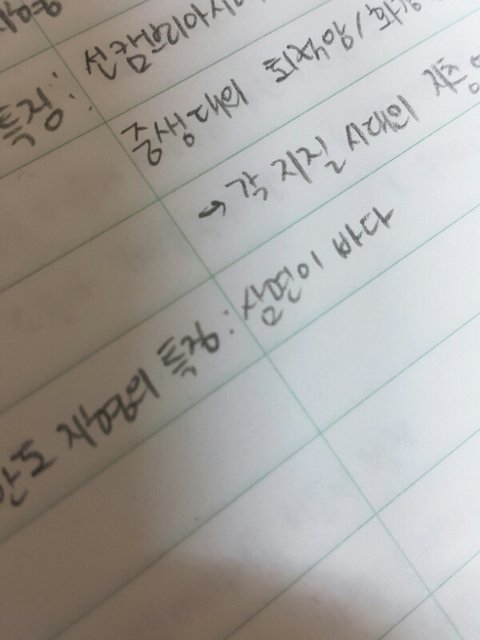 특징: 선캄브리아시
중생대의 퇴적암/화강
→ 각 지질 시대의 지층
반도 지형의 특징: 삼면이 바다